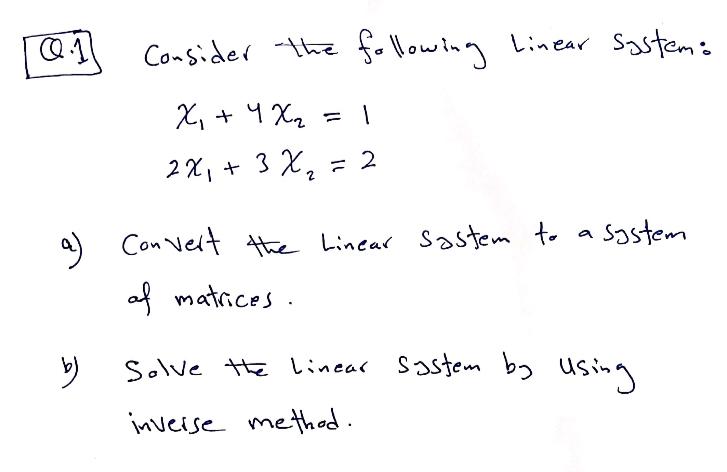 Q.1 Consider the following Linear System:
X₁ + 4X₂ = 1
2X₁ + 3X₂ = 2
a) Convert the Linear System to a system
of matrices.
b) Solve the Linear System by Using
inverse method.